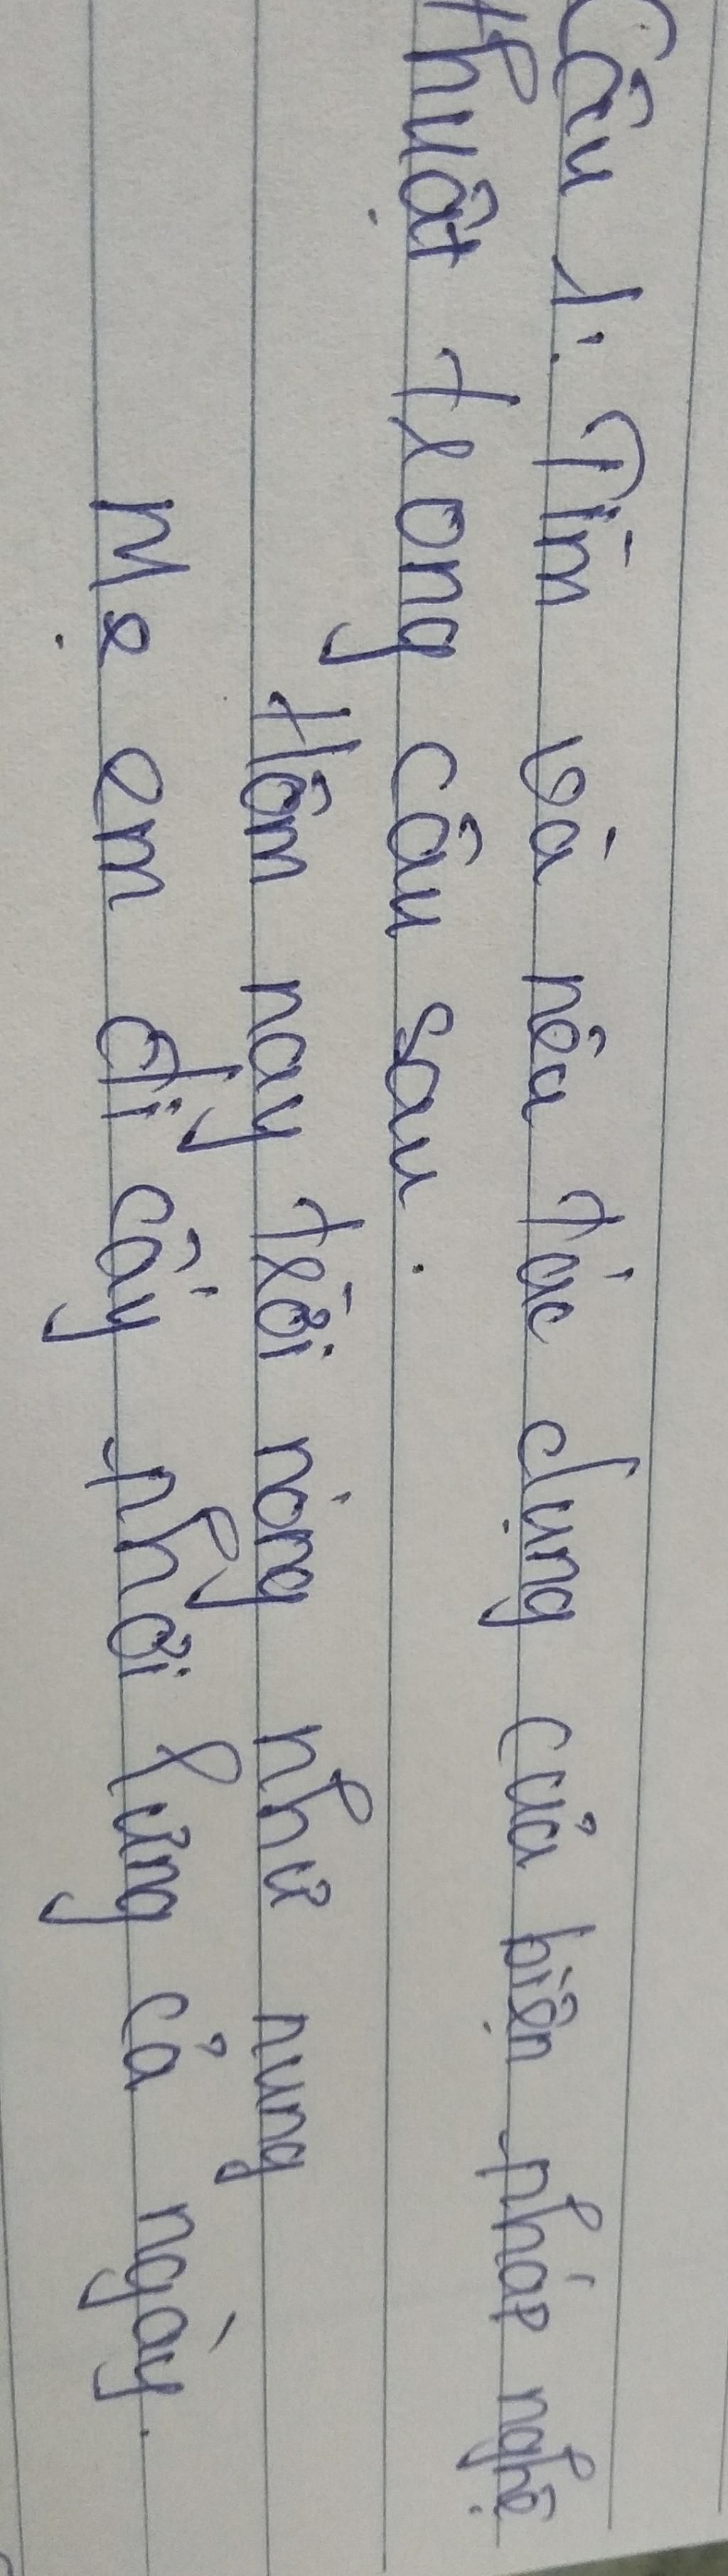 Câu 1: Tìm và nêu tác dụng của biện pháp nghệ
thuật trong câu sau.
Hôm nay trời nóng như nung
Mẹ em đi cấy phơi lưng cả ngày.